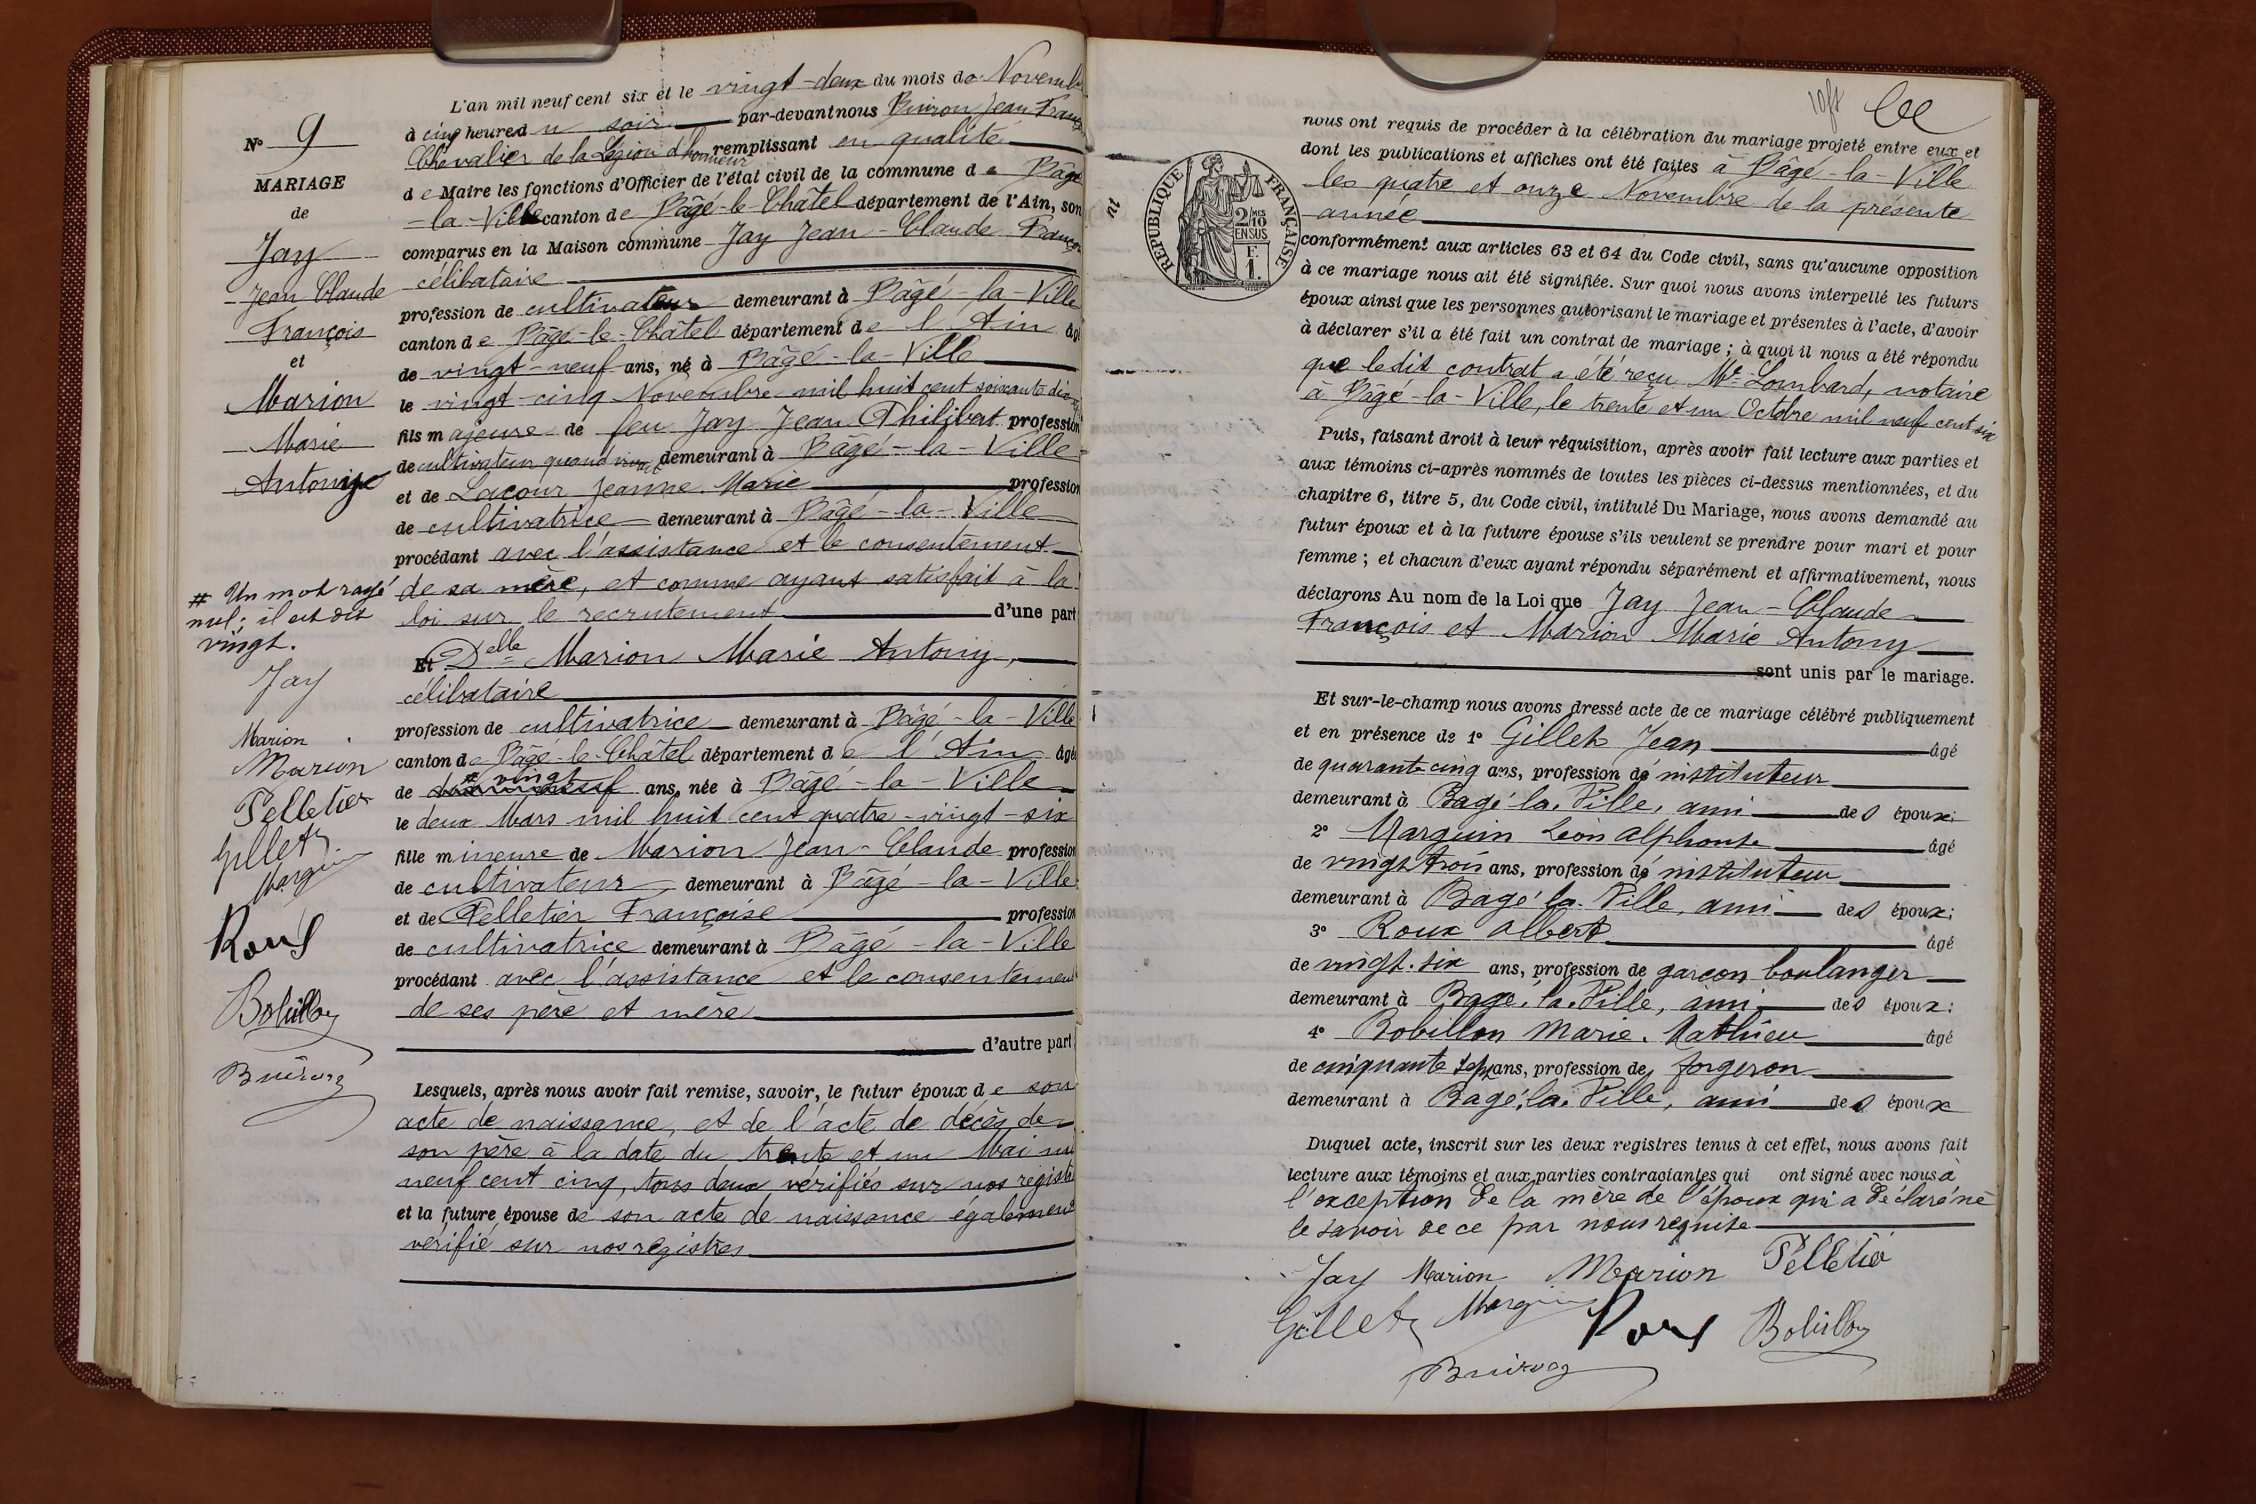 L'an mil neuf cent six et le vingt-deux du mois de Novembre
à cinq heures du soir par-devant nous Buiron Jean Franç
Chevalier de la Légion d'honneur remplissant en qualité
de Maire les fonctions d'Officier de l'état civil de la commune de Bâgé
-la-Ville canton de Bâgé-le-Châtel département de l'Ain, son
comparus en la Maison commune Jay Jean-Claude François
célibataire
profession de cultivateur demeurant à Bâgé-la-Ville
canton de Bâgé-le-Châtel département de l'Ain âgé
de vingt-neuf ans, né à Bâgé-la-Ville
le vingt-cinq Novembre mil huit cent soixante dix
fils majeure de feu Jay Jean Philibert profession
de cultivateur quand vivait demeurant à Bâgé-la-Ville
et de Lacour Jeanne Marie profession
de cultivatrice demeurant à Bâgé-la-Ville
procédant avec l'assistance et le consentement
de sa mère, et comme ayant satisfait à la
loi sur le recrutement d'une part
Et Delle Marion Marie Antony,
célibataire
profession de cultivatrice demeurant à Bâgé-la-Ville
canton de Bâgé-le-Châtel département de l'Ain âgée
de # vingt ans, née à Bâgé-la-Ville
le deux Mars mil huit cent quatre-vingt-six
fille mineure de Marion Jean-Claude profession
de cultivateur demeurant à Bâgé-la-Ville
et de Pelletier Françoise profession
de cultivatrice demeurant à Bâgé-la-Ville
procédant avec l'assistance et le consentement
de ses père et mère
d'autre part
Lesquels, après nous avoir fait remise, savoir, le futur époux de son
acte de naissance, et de l'acte de décès de
son père à la date du trente et un Mai mil
neuf cent cinq, tous deux vérifiés sur nos registres
et la future épouse de son acte de naissance également
vérifié sur nos registres
N° 9
MARIAGE
de
Jay
Jean Claude
François
et
Marion
Marie
Antony
# Un mot rayé
nul; il est dit
vingt.
Jay
Marion
Marion
Pelletier
Gillet
Marguin
Roux
Bobillon
Buiron
nous ont requis de procéder à la célébration du mariage projeté entre eux et
dont les publications et affiches ont été faites à Bâgé-la-Ville
les quatre et onze Novembre de la présente
année
conformément aux articles 63 et 64 du Code civil, sans qu'aucune opposition
à ce mariage nous ait été signifiée. Sur quoi nous avons interpellé les futurs
époux ainsi que les personnes autorisant le mariage et présentes à l'acte, d'avoir
à déclarer s'il a été fait un contrat de mariage; à quoi il nous a été répondu
que ledit contrat a été reçu Me Lombard, notaire
à Bâgé-la-Ville, le trente et un Octobre mil neuf cent six
Puis, faisant droit à leur réquisition, après avoir fait lecture aux parties et
aux témoins ci-après nommés de toutes les pièces ci-dessus mentionnées, et du
chapitre 6, titre 5, du Code civil, intitulé Du Mariage, nous avons demandé au
futur époux et à la future épouse s'ils veulent se prendre pour mari et pour
femme; et chacun d'eux ayant répondu séparément et affirmativement, nous
déclarons Au nom de la Loi que Jay Jean-Claude
François et Marion Marie Antony
sont unis par le mariage.
Et sur-le-champ nous avons dressé acte de ce mariage célébré publiquement
et en présence de 1° Gillet Jean âgé
de quarante cinq ans, profession de instituteur
demeurant à Bagé-la-Ville, ami des époux;
2° Marguin Léon Alphonse âgé
de vingt trois ans, profession de instituteur
demeurant à Bagé la Ville, ami des époux;
3° Roux Albert âgé
de vingt.six ans, profession de garçon boulanger
demeurant à Bagé.la.Ville, ami des époux:
4° Bobillon Marie. Mathieu âgé
de cinquante sept ans, profession de forgeron
demeurant à Bagé.la.Ville, ami des époux
Duquel acte, inscrit sur les deux registres tenus à cet effet, nous avons fait
lecture aux témoins et aux parties contractantes qui ont signé avec nous à
l'exception de la mère de l'époux qui a déclaré ne
le savoir de ce par nous requise
Jay Marion Marion Pelletier
Gillet Marguin Roux Bobillon
Buiron
RÉPUBLIQUE FRANÇAISE
2/10MES
EN SUS
F.
1.